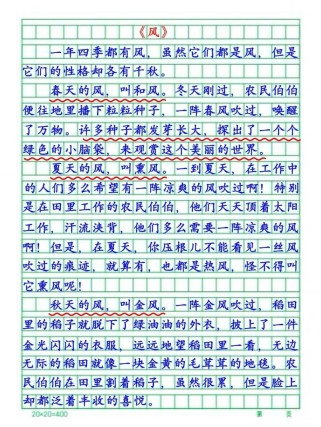 《风》
一年四季都有风，虽然它们都是风，但是
它们的性格却各有千秋。
春天的风，叫和风。冬天刚过，农民伯伯
便往地里播下粒粒种子，一阵春风吹过，唤醒
了万物。许多种子都发芽长大，探出了一个个
绿色的小脑袋，来观赏这个美丽的世界。
夏天的风，叫熏风。一到夏天，在工作中
的人们多么希望有一阵凉爽的风吹过啊！特别
是在田里工作的农民伯伯，他们天天顶着太阳
工作，汗流浃背，他们多么需要一阵凉爽的风
啊！但是，在夏天，你压根儿不能看见一丝风
吹过的痕迹，就算有，也都是热风，怪不得叫
它熏风呢！
秋天的风，叫金风。一阵金风吹过，稻田
里的稻子就脱下了绿油油的外衣，披上了一件
金光闪闪的衣服，远远地望稻田里一看，无边
无际的稻田就像一块金黄的毛茸茸的地毯。农
民伯伯在田里割着稻子，虽然很累，但是脸上
却都泛着丰收的喜悦。
20×20=400 第 页